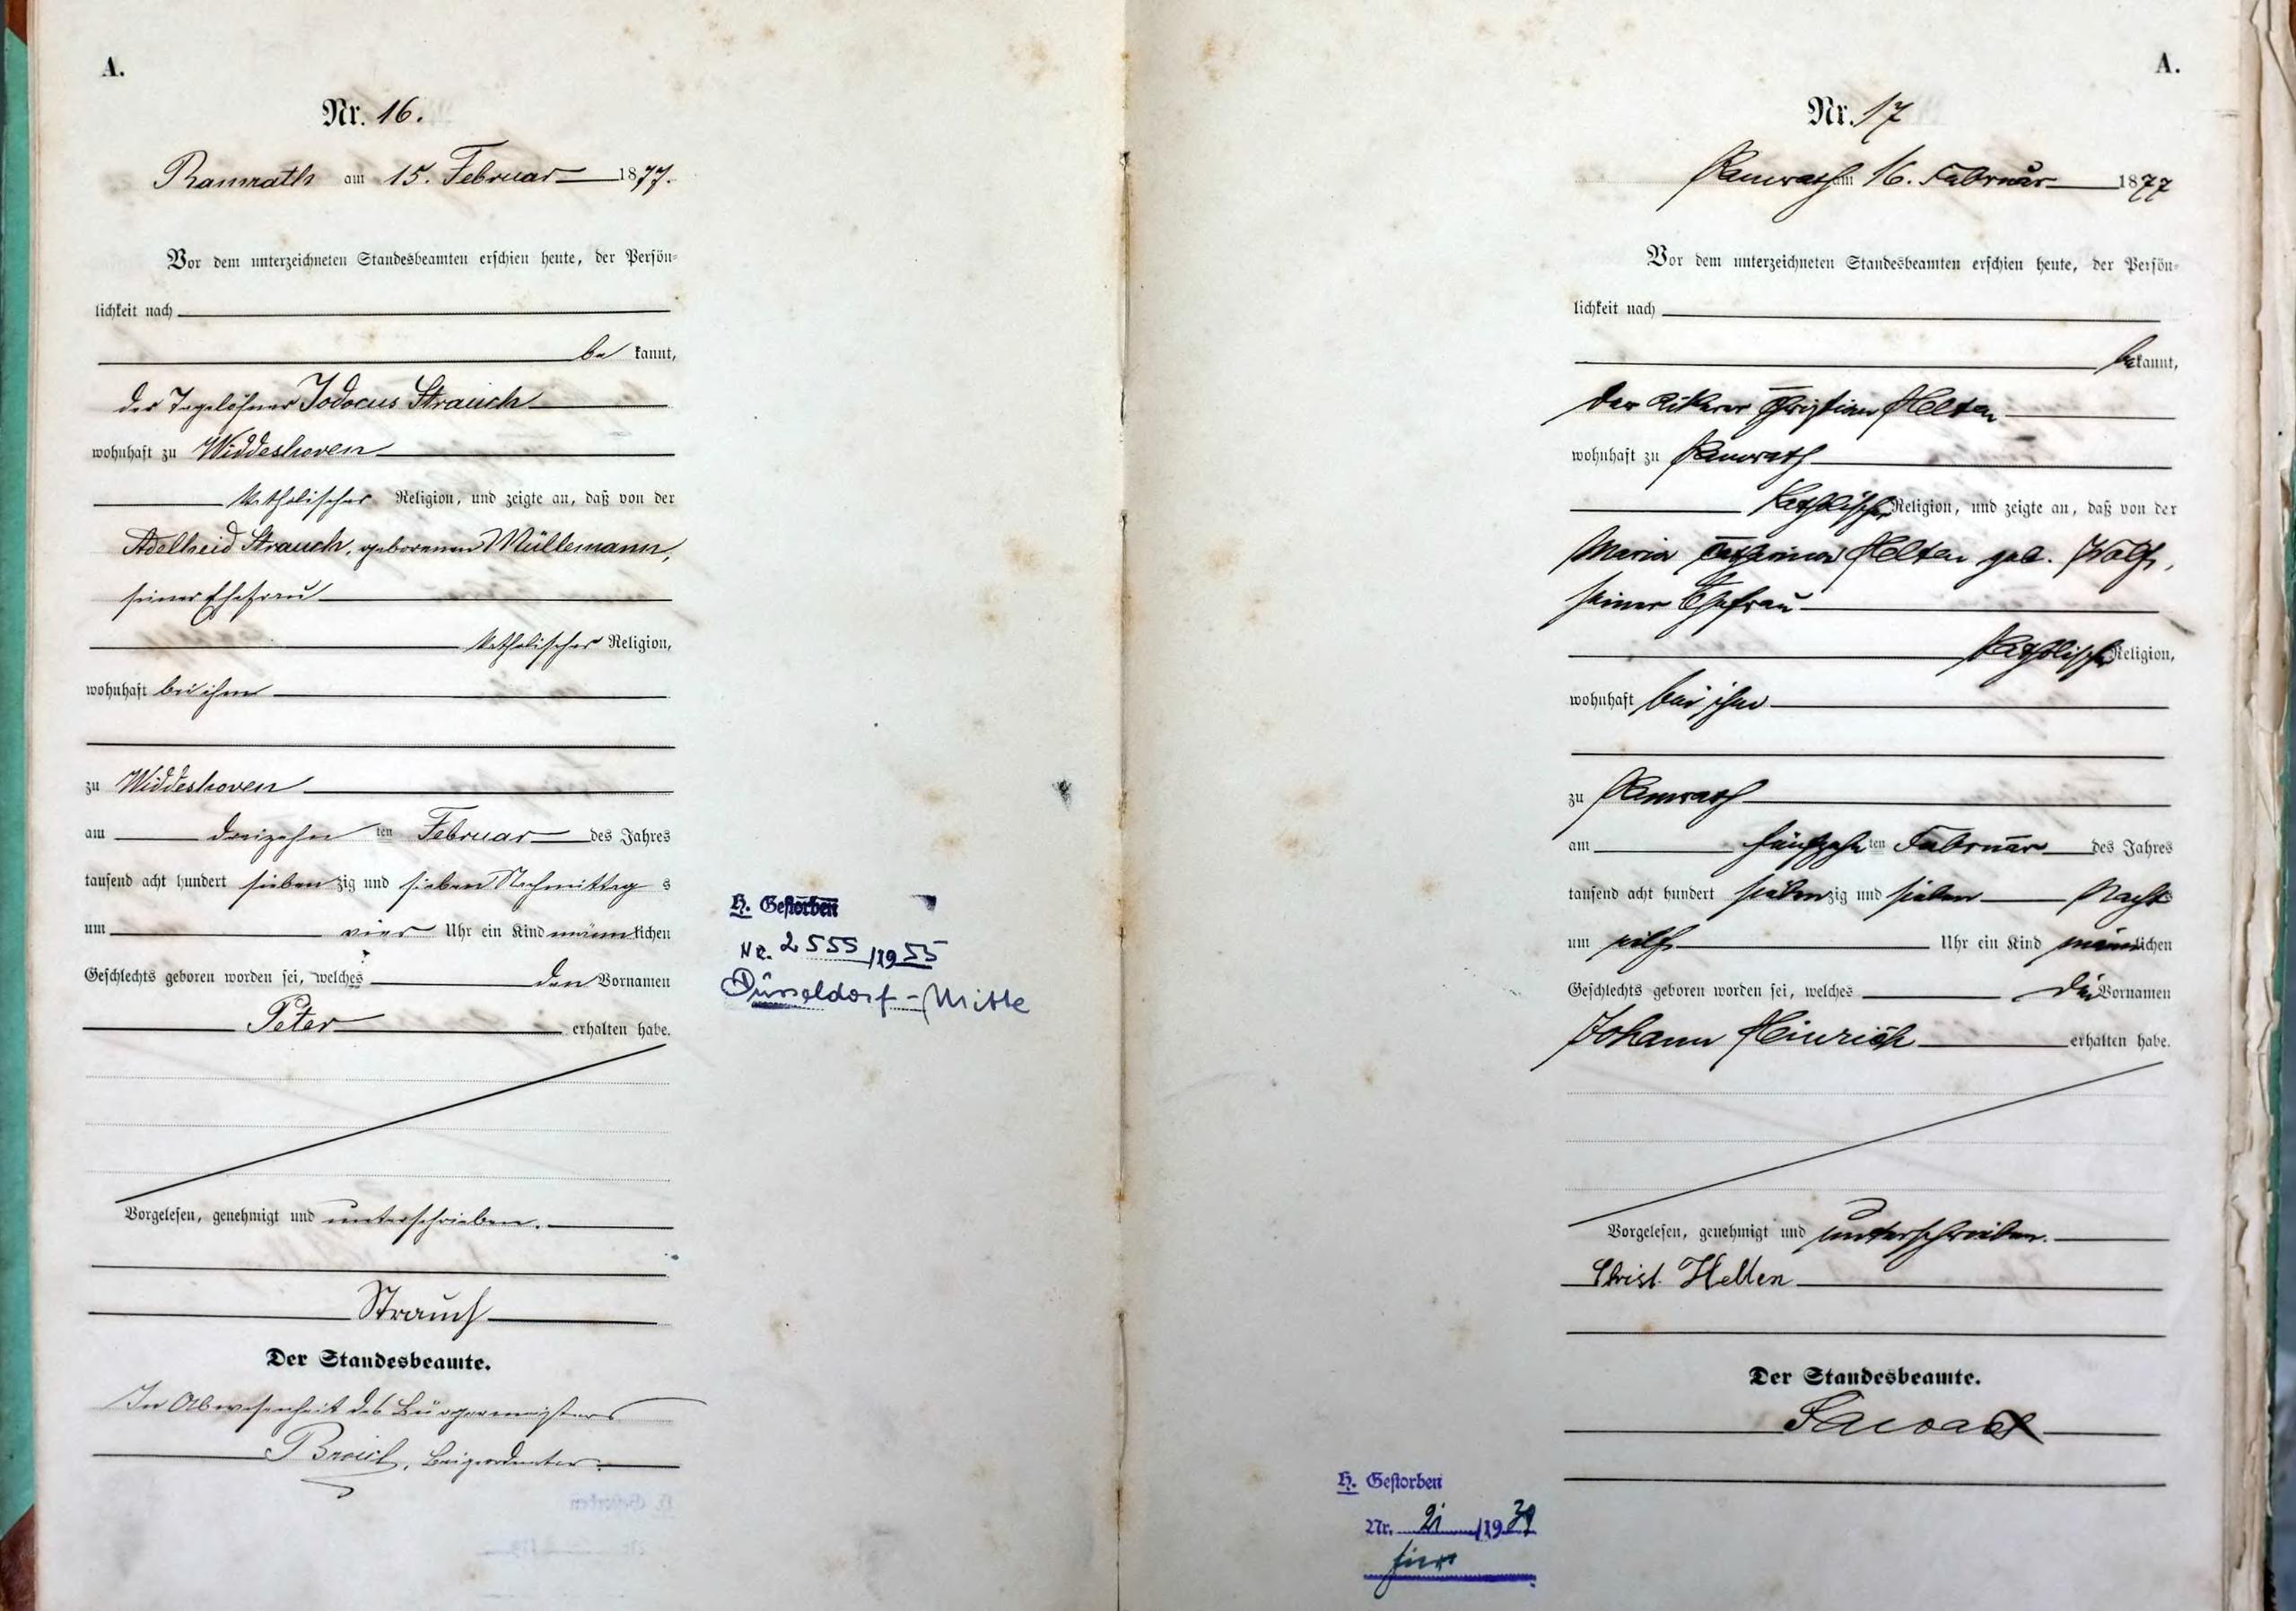 A.
Nr. 16.
Ramrath am 15. Februar 1877.
Vor dem unterzeichneten Standesbeamten erschien heute, der Persön-
lichkeit nach
be kannt,
der Tagelöhner Jodocus Strauch
wohnhaft zu Widdeshoven
katholischer Religion, und zeigte an, daß von der
Adelheid Strauch, geborenen Müllemann,
seiner Ehefrau
katholischer Religion,
wohnhaft bei ihm
zu Widdeshoven
am dreizehn ten Februar des Jahres
tausend acht hundert sieben zig und sieben Nachmittag s
um vier Uhr ein Kind männ lichen
Geschlechts geboren worden sei, welches den Vornamen
Peter erhalten habe.
Vorgelesen, genehmigt und unterschrieben.
Strauch
Der Standesbeamte.
In Abwesenheit des Bürgermeisters
Broich, Beigeordneter.
H. Gestorben
Nr. 2555/1955
Düsseldorf-Mitte
A.
Nr. 17
Ramrath am 16. Februar 1877
Vor dem unterzeichneten Standesbeamten erschien heute, der Persön-
lichkeit nach
bekannt,
der Ackerer Christian Helten
wohnhaft zu Ramrath
katholischer Religion, und zeigte an, daß von der
Maria Catharina Helten geb. Wolf,
seiner Ehefrau
katholischer Religion,
wohnhaft bei ihm
zu Ramrath
am fünfzehn ten Februar des Jahres
tausend acht hundert siebenzig und sieben Nachts
um elf Uhr ein Kind männlichen
Geschlechts geboren worden sei, welches die Vornamen
Johann Heinrich erhalten habe.
Vorgelesen, genehmigt und unterschrieben.
Christ. Helten
Der Standesbeamte.
H. Gestorben
Nr. /19
hier